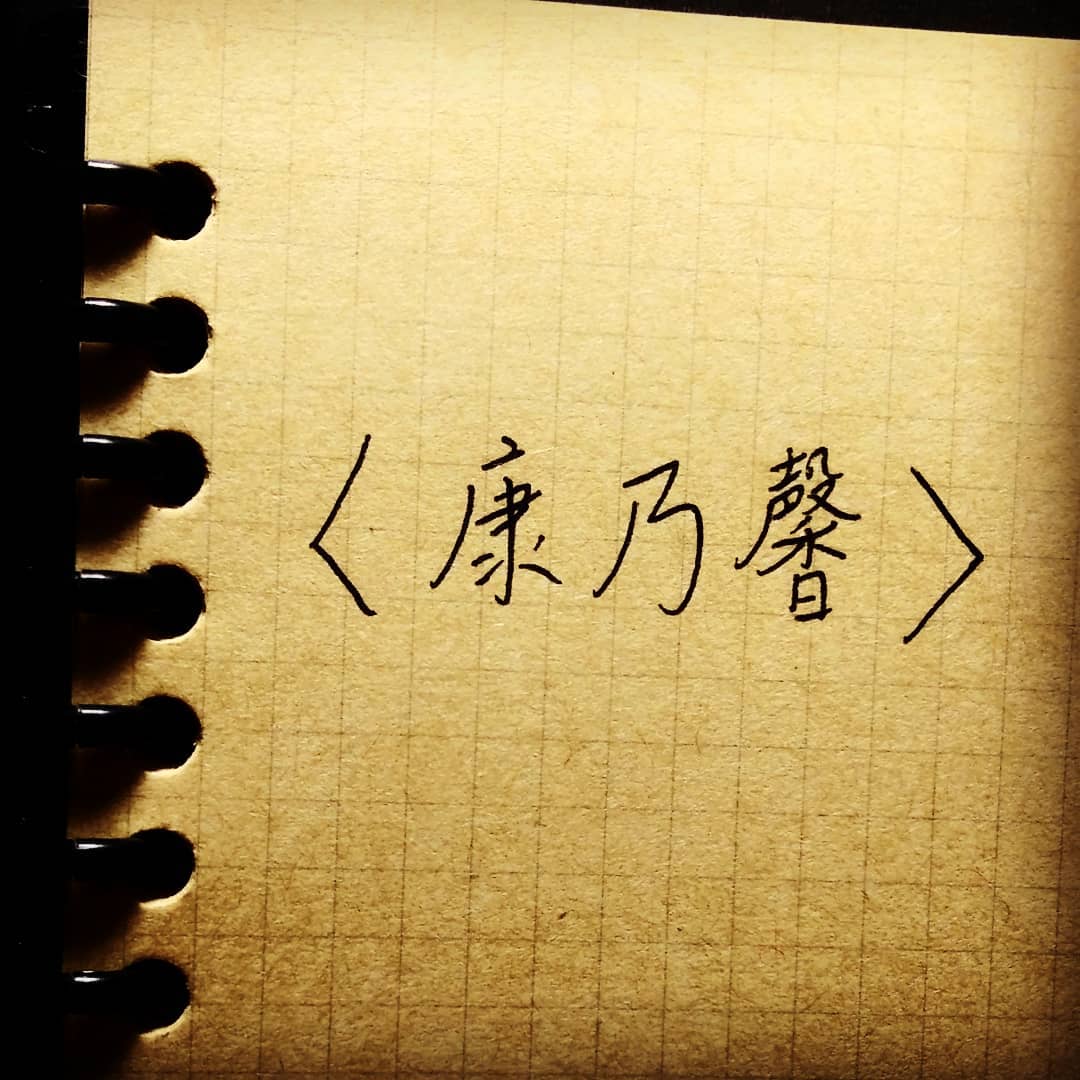 〈康乃馨〉